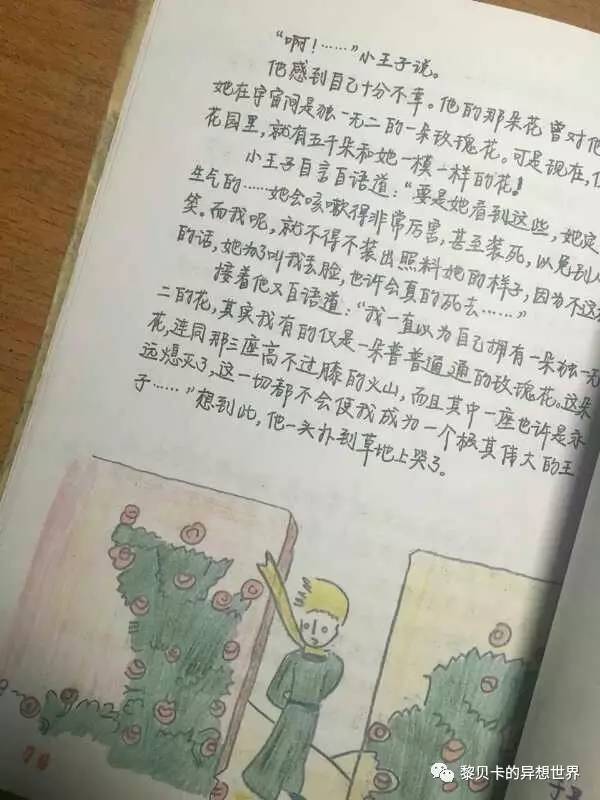 “啊！……”小王子说。
他感到自己十分不幸。他的那朵花曾对他
她在宇宙间是独一无二的一朵玫瑰花。可是现在，仅
花园里，就有五千朵和她一模一样的花！
小王子自言自语道：“要是她看到这些，她定
生气的……她会咳嗽得非常厉害，甚至装死，以免到人
笑。而我呢，就不得不装出照料她的样子，因为不这
的话，她为了叫我丢脸，也许会真的死去……”
接着他又自语道：“我一直以为自己拥有一朵独一无
二的花，其实我有的仅是一朵普普通通的玫瑰花。这朵
花，连同那三座高不过膝的火山，而且其中一座也许是永
远熄灭了，这一切都不会使我成为一个极其伟大的王
子……”想到此，他一头扑到草地上哭了。
黎贝卡的异想世界